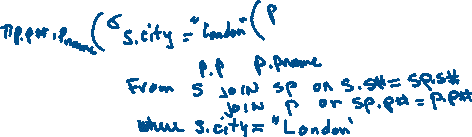 πp.p#,pname(σ s.city = "London" (p
p.p p.pname
From s join sp on s.s# = sp.s#
join p or sp.p# = p.p#
where s.city = "London"